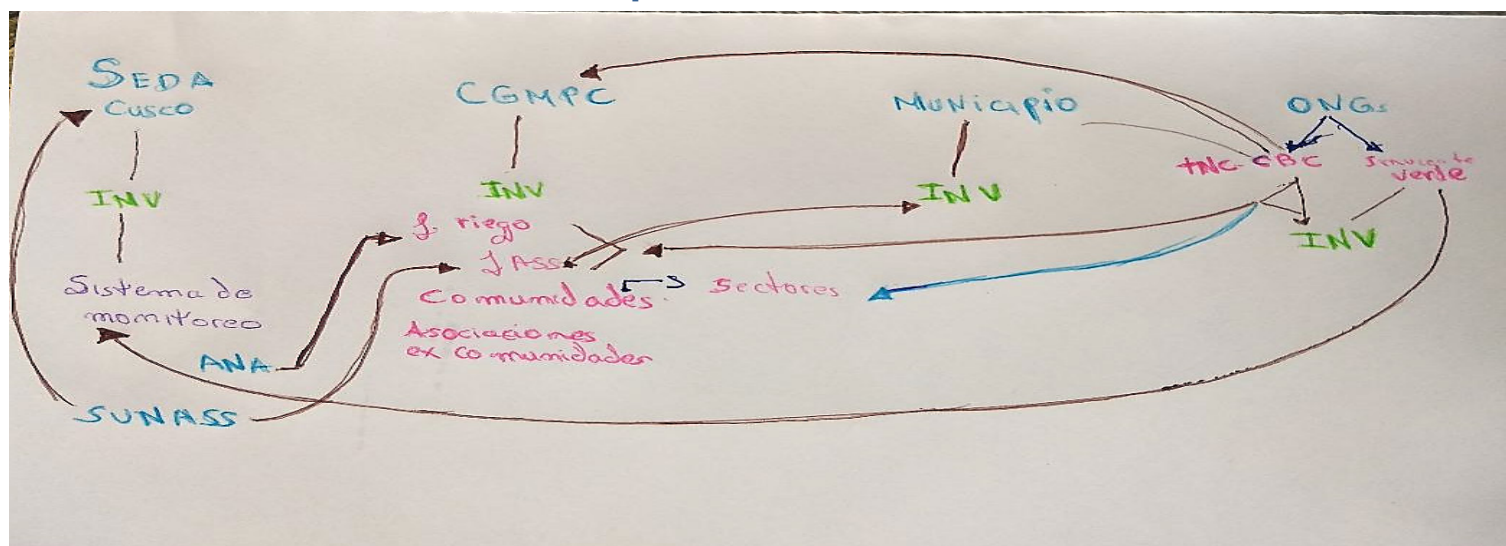 SEDA
Cusco
INV
Sistema de
momitoreo
ANA
SUNASS
CGMPC
INV
J. riego
JASS
Comunidades.
Asociaciones
ex comunidades
Sectores
Municipio
INV
ONGs
TNC-CBC
verde
INV